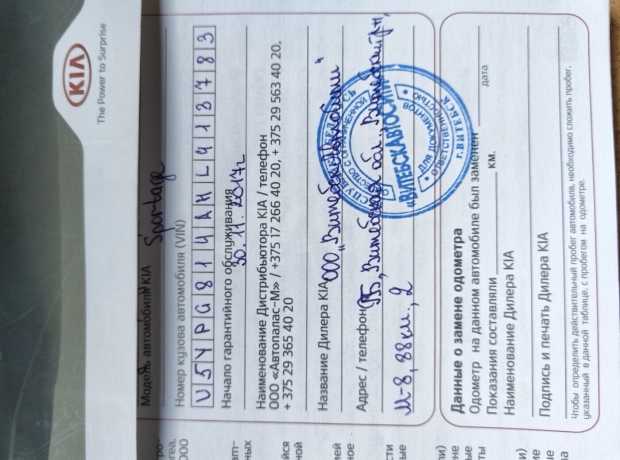 KIA
The Power to Surprise
Модель автомобиля KIA Sportage
Номер кузова автомобиля (VIN)
U5YPG814AHL413783
Начало гарантийного обслуживания
30.11.2017г.
Наименование Дистрибьютора KIA / телефон
ООО «Автопалас-М» / +375 17 266 40 20, +375 29 563 40 20,
+ 375 29 365 40 20
Название Дилера KIA ООО „Витебскавтосити"
Адрес / телефон РБ, Витебская обл., Витебский р-н,
М-8, 88км., 2
«ВИТЕБСКАВТОСИТИ»
ДЛЯ ДОКУМЕНТОВ
г. ВИТЕБСК
Данные о замене одометра
Одометр на данном автомобиле был заменен
дата
Показания составляли км.
Наименование Дилера KIA
Подпись и печать Дилера KIA
Чтобы определить действительный пробег автомобиля, необходимо сложить пробег,
указанный в данной таблице, с пробегом на одометре.